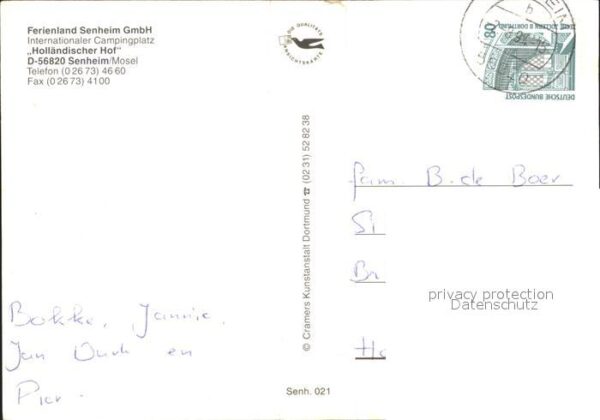 Ferienland Senheim GmbH
Internationaler Campingplatz
„Holländischer Hof"
D-56820 Senheim/Mosel
Telefon (0 26 73) 46 60
Fax (0 26 73) 41 00
DIE QUALITÄTS
ANSICHTSKARTE
80
ZECHE ZOLLERN II DORTMUND
DEUTSCHE BUNDESPOST
© Cramers Kunstanstalt Dortmund ☎ (02 31) 52 82 38
fam. B. de Boer
Si
Br
Ho
privacy protection
Datenschutz
Bokke, Jannie,
Jan en
Senh. 021